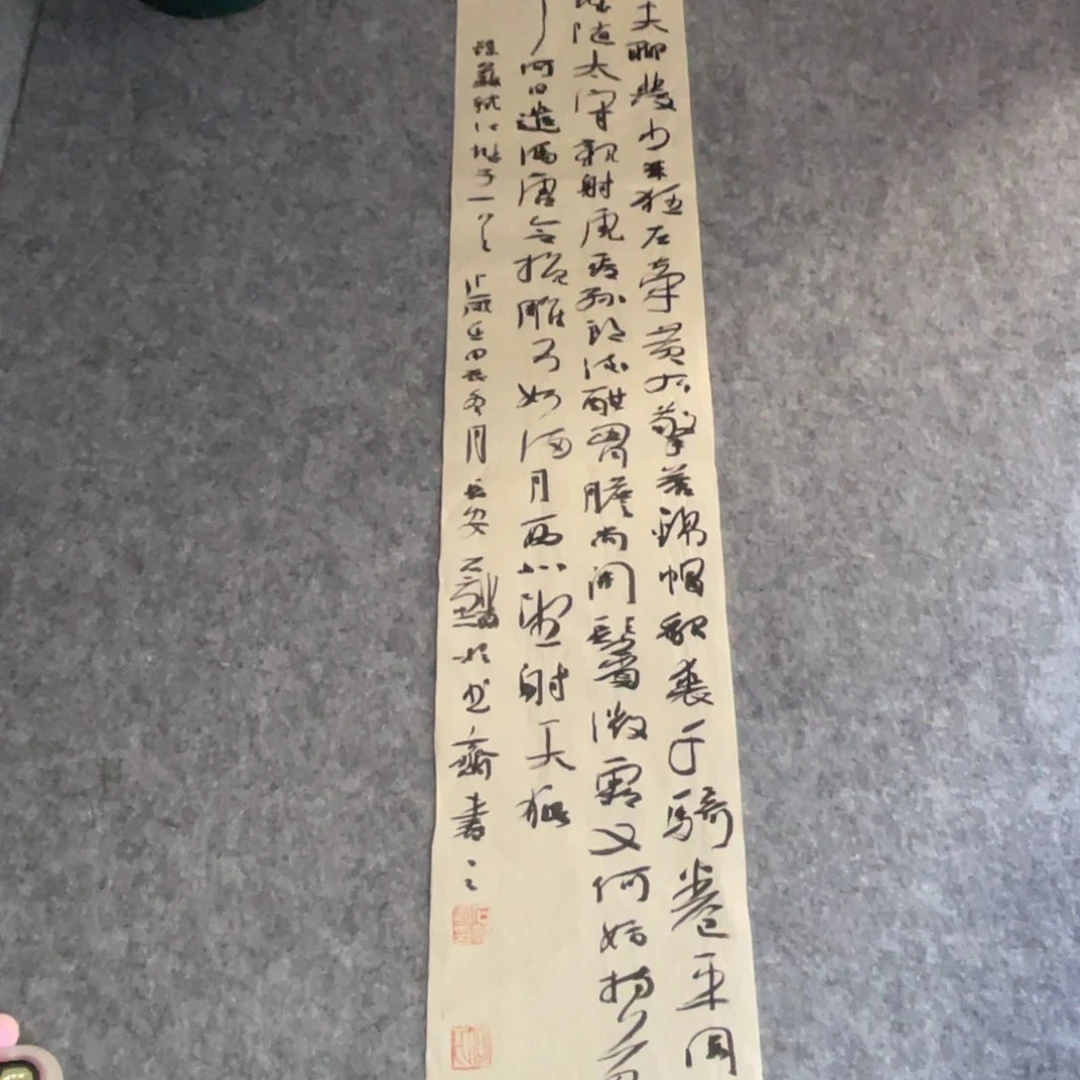 夫聊發少年狂左牽黃右擎蒼錦帽貂裘千騎卷平岡
隨太守親射虎看孫郎酒酣胷膽尚開鬢微霜又何妨持節雲
何日遣馮唐會挽雕弓如滿月西北望射天狼
蘇軾江城子一首 歲 冬月 長安 石 於 齋書之